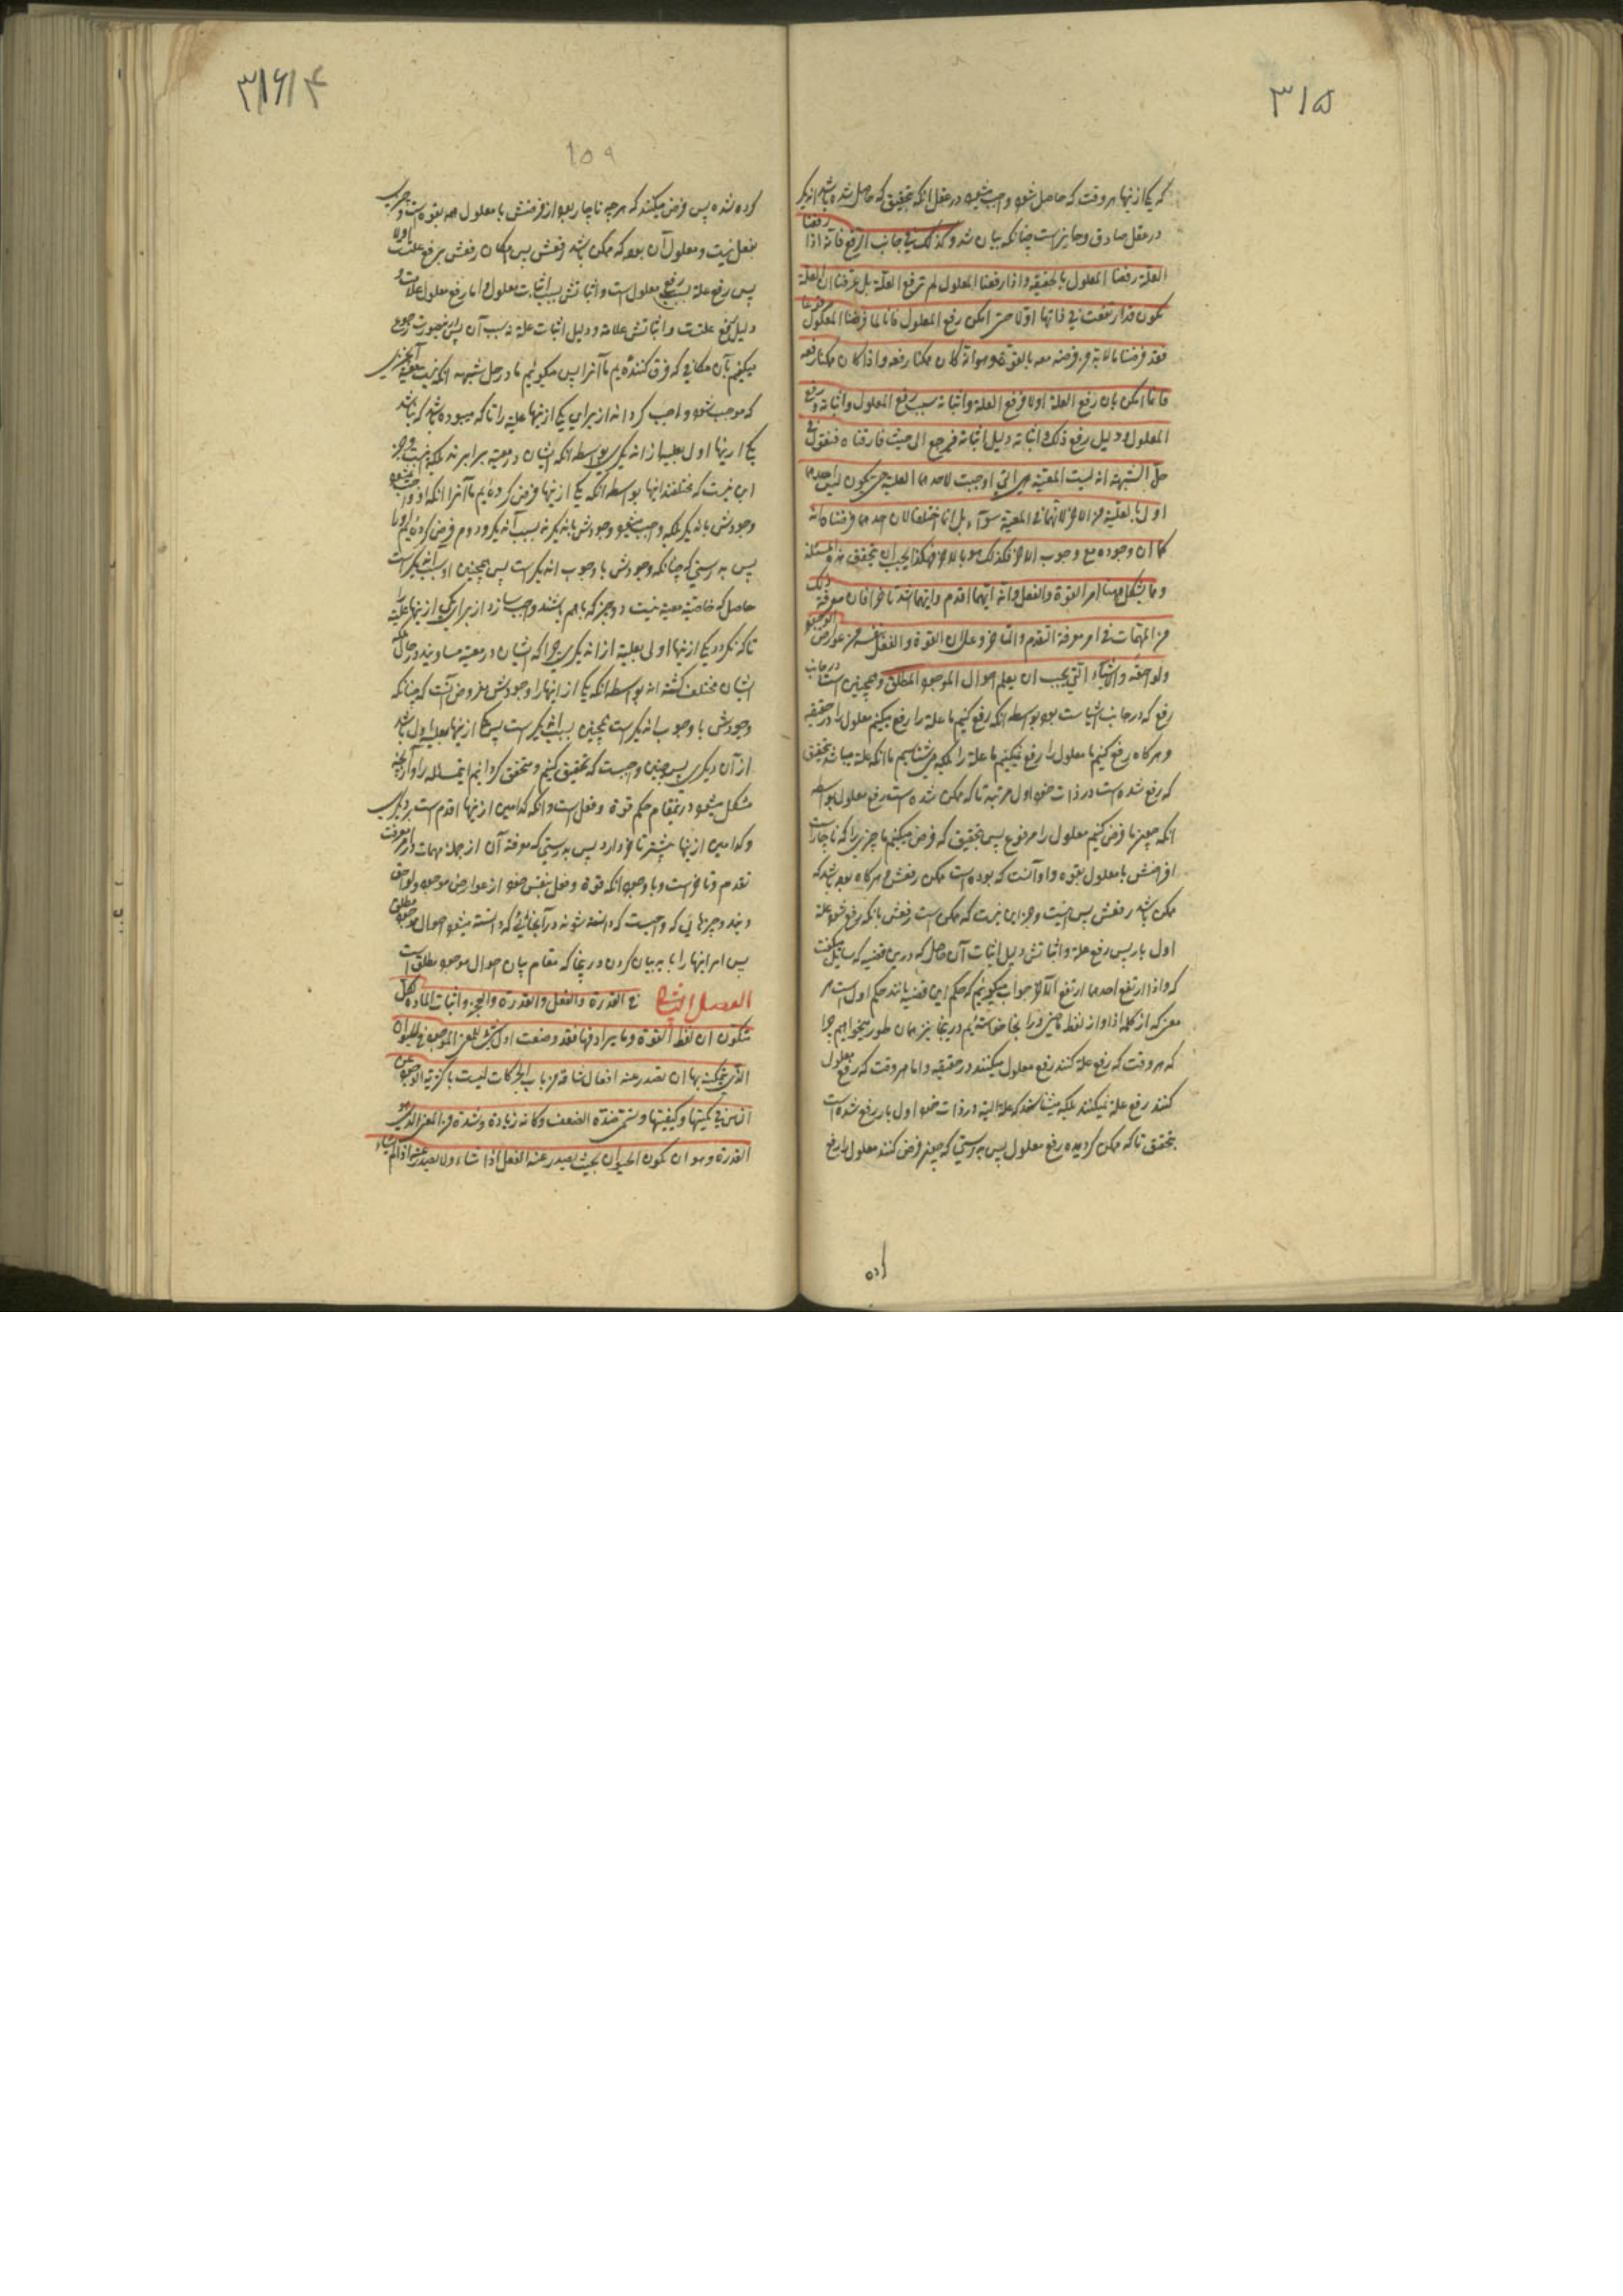 ۳۱۵
که یکی ازینها هر وقت که حاصل شود واجب میشود در عقل انکه بتحقیق که حاصل شده باشد اندیکر
در عقل صادق و جایز است چنانکه بیان شد و کذلک فی جانب الرفع فانه اذا رفعنا
العلة رفعنا المعلول بالحقیقه و اذا رفعنا المعلول لم نرفع العلة بل عرفنا ان العلة
تکون قد ارتفعت فی ذاتها اولا حتی امکن رفع المعلول فانا لما فرضنا المعلول مرفوعا
فقد فرضنا ما لابد من فرضه معه بالقوة وهو انه کان ممکنا رفعه و اذا کان ممکنا رفعه
فانما امکن بان رفع العلة اولا فرفع العلة و اثباته سبب رفع المعلول و اثباته و رفع
المعلول دلیل رفع ذلک و اثباته دلیل اثباته فنرجع الی حیث فارقناه فنقول فی
حل الشبهة انه لیست المعیة هی التی اوجبت لاحدهما العلیة حتی یکون لیس احدهما
اولی بالعلیة من الاخر لانهما فی المعیة سواء بل انما اختلفا لان احدهما فرضناه انه
کما ان وجوده مع وجوب الاخر فکذلک هو بالاخر فهکذا یجب ان تتحقق هذه المسئلة
و مما یشکل ههنا امر القوة و الفعل و انه ایهما اقدم و ایهما اشد تاخرا فان معرفة ذلک
من المهمات فی امر معرفة التقدم و التاخر و علی ان القوة و الفعل نفسه من عوارض الوجود
و لواحقه و الاشیاء التی یجب ان یعلم احوال الموجود المطلق و همچنین است در جانب
رفع که در جانب اثبات بود بواسطه انکه رفع کنیم ما علة را رفع میکنیم معلول را در حقیقه
و هر کاه رفع کنیم ما معلول را رفع نمیکنیم ما علة را بلکه میشناسیم ما انکه علة میباشد بتحقیق
که رفع شده است در ذات خود اول مرتبه تا که ممکن شده است رفع معلول بواسطه
انکه چون ما فرض کنیم معلول را مرفوع پس بتحقیق که فرض میکنیم ما چیزی را که ناچار است
از فرضش با معلول بقوه و او آنست که بوده است ممکن رفعش و هر کاه بوده باشد که
ممکن باشد رفعش پس نیست و جز این نیست که ممکن است رفعش بانکه رفع شود علة
اول بار پس رفع علة و اثباتش دلیل اثبات آن حاصل که در این قضیه که سایل میکفت
که و اذا ارتفع احدهما ارتفع الاخر جواب میکوییم که حکم این قضیه مانند حکم اول است
معنی که از کلمه اذا و از لفظ ما چیزی را انجا خواسته‌ایم در ینجا نیز همان طور میخواهیم چرا
که هر وقت که رفع علة کنند رفع معلول میکنند در حقیقه و اما هر وقت که رفع معلول
کنند رفع علة نمیکنند بلکه میشناسند که علة البته در ذات خود اول بار رفع شده است
بتحقق تا که ممکن کردیده رفع معلول پس بدرستی که چون فرض کنند معلول را رفع
۳۱۶
۱۵۹
کرده شده پس فرض میکنند که هر چه ناچار بود از فرضش با معلول
بفعل نیست و معلول آن بود که ممکن باشد رفعش پس امکان رفعش برفع علتست اولا
پس رفع علة سبب رفع معلول است و اثباتش سبب اثبات معلول و اما رفع معلول علامت و
دلیل رفع علتست و اثباتش علامة و دلیل اثبات علة نه سبب آن
میکنیم بآن مکانی که فرق کننده‌ایم ما آنرا پس میکوییم ما در حل شبهه انکه نیست معیة
که موجب شود و واجب کرداند از برای یکی ازینها علیة را تا که
یکی ازینها اولی بعلیة از اندیکری بواسطه انکه ایشان در معیة برابرند بلکه نیست و جز
این نیست که مختلفند اینها بواسطه انکه یکی ازینها فرض کرده‌ایم ما آنرا انکه
وجودش باندیکر بلکه واجب میشود وجودش باندیکر نه بسبب آندیکر و دوم فرض کرده‌ایم او را
پس بدرستی که چنانکه وجودش با وجوب اندیکر است پس همچنین او بسبب اندیکر است
حاصل که خاصیة معیة نیست دو چیز که با هم باشند واجب سازد از برای یکی ازینها علیة را
تا که نکردد یکی ازینها اولی بعلیة از اندیکری چرا که ایشان در معیة مساویند
ایشان مختلف کشته‌اند بواسطه انکه یکی ازینها را وجودش مفروض آنست که چنانکه
وجودش با وجوب اندیکر است همچنین بسبب اندیکر است پس یکی ازینها بعلیة اولی باشد
از آن دیکری پس چنین واجبست که تحقیق کنیم و متحقق کردانیم این مسئله را و از آنچه
مشکل میشود در ینمقام حکم قوة و فعل است و انکه کدامین ازینها اقدم است بر دیکری
و کدامین ازینها بیشتر تاخر دارد پس بدرستی که معرفة آن از جمله مهمات در امر معرفت
تقدم و تاخر است و با وجود انکه قوة و فعل بنفس خود از عوارض موجود و لواحق
ویند و چیزهایی که واجبست که دانسته شوند در آنجائی که دانسته میشود احوال موجود مطلق
پس امر اینها را باید بیان کردن در ینجا که مقام بیان احوال موجود مطلق است
الفصل الثانی فی القدرة و الفعل و القدرة و العجز و اثبات المادة لکل
متکون ان لفظ القوة و ما یرادفها فقد وضعت اول شیء للمعنی الموجود فی الحیوان
الذی یمکنه بها ان تصدر عنه افعال شاقة من باب الحرکات لیست باکثریة الوجود عن
الناس فی کمیتها و کیفیتها و یسمی ضده الضعف و کانه زیادة و شدة من المعنی الذی هو
القدرة و هو ان یکون الحیوان بحیث یصدر عنه الفعل اذا شاء و لا یصدر عنه اذا لم یشاء